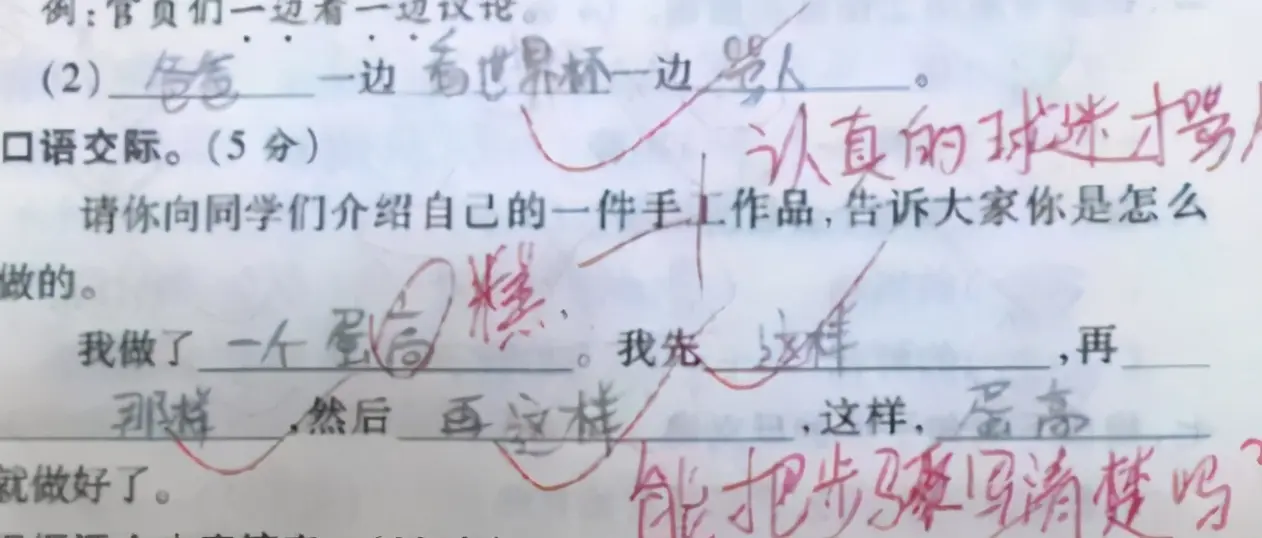 例:官员们一边看一边议论。
(2) 爸爸 一边 看世界杯一边 骂人 。
认真的球迷才骂人
口语交际。(5 分)
请你向同学们介绍自己的一件手工作品,告诉大家你是怎么
做的。
糕
我做了 一个蛋高 。我先 这样 ,再
那样 ,然后 再这样 ,这样, 蛋高
就做好了。
能把步骤写清楚吗?